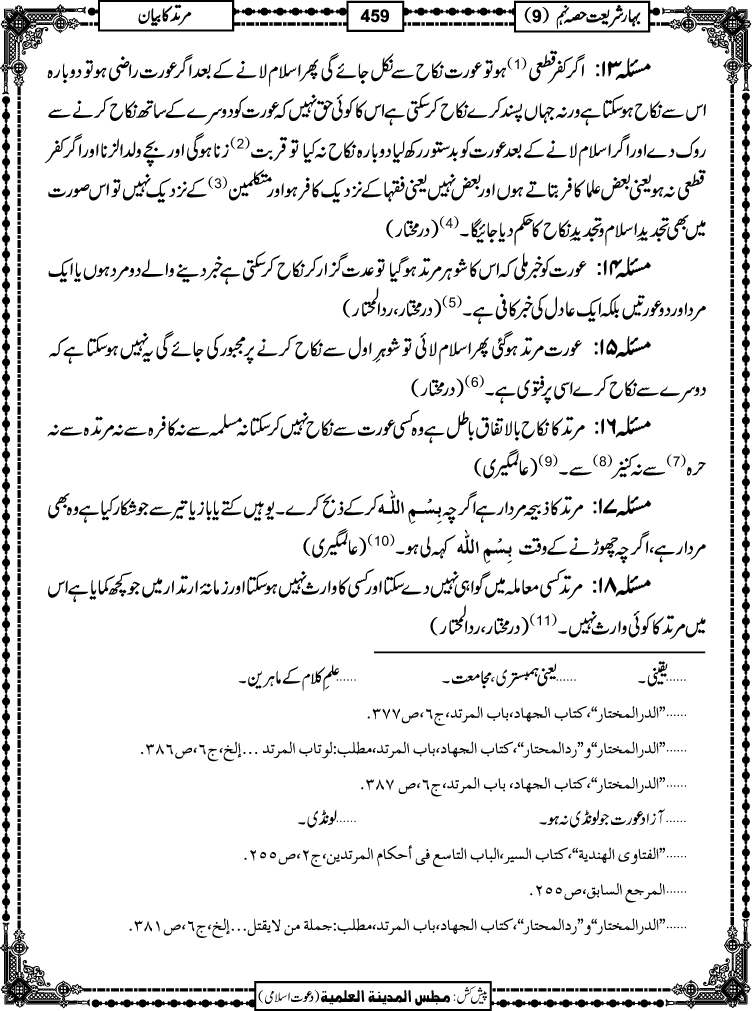 بہارِ شریعت حصہ نہم (9)
459
مرتد کا بیان
مسئلہ ۱۳: اگر کفر قطعی (1) ہو تو عورت نکاح سے نکل جائے گی پھر اسلام لانے کے بعد اگر عورت راضی ہو تو دوبارہ
اس سے نکاح ہو سکتا ہے ورنہ جہاں پسند کرے نکاح کر سکتی ہے اس کا کوئی حق نہیں کہ عورت کو دوسرے کے ساتھ نکاح کرنے سے
روک دے اور اگر اسلام لانے کے بعد عورت کو بدستور رکھ لیا دوبارہ نکاح نہ کیا تو قربت (2) زنا ہوگی اور بچے ولد الزنا اور اگر کفر
قطعی نہ ہو یعنی بعض علما کافر بتاتے ہوں اور بعض نہیں یعنی فقہا کے نزدیک کافر ہو اور متکلمین (3) کے نزدیک نہیں تو اس صورت
میں بھی تجدیدِ اسلام و تجدیدِ نکاح کا حکم دیا جائیگا۔ (4) (درمختار)
مسئلہ ۱۴: عورت کو خبر ملی کہ اس کا شوہر مرتد ہو گیا تو عدت گزار کر نکاح کر سکتی ہے خبر دینے والے دو مرد ہوں یا ایک
مرد اور دو عورتیں بلکہ ایک عادل کی خبر کافی ہے۔ (5) (درمختار، ردالمحتار)
مسئلہ ۱۵: عورت مرتد ہوگئی پھر اسلام لائی تو شوہرِ اول سے نکاح کرنے پر مجبور کی جائے گی یہ نہیں ہو سکتا ہے کہ
دوسرے سے نکاح کرے اسی پر فتویٰ ہے۔ (6) (درمختار)
مسئلہ ۱۶: مرتد کا نکاح بالاتفاق باطل ہے وہ کسی عورت سے نکاح نہیں کر سکتا نہ مسلمہ سے نہ کافرہ سے نہ مرتدہ سے نہ
حرہ (7) سے نہ کنیز (8) سے۔ (9) (عالمگیری)
مسئلہ ۱۷: مرتد کا ذبیحہ مردار ہے اگرچہ بِسْمِ اللّٰہ کر کے ذبح کرے۔ یوہیں کتے یا باز یا تیر سے جو شکار کیا ہے وہ بھی
مردار ہے، اگرچہ چھوڑنے کے وقت بِسْمِ اللّٰہ کہہ لی ہو۔ (10) (عالمگیری)
مسئلہ ۱۸: مرتد کسی معاملہ میں گواہی نہیں دے سکتا اور کسی کا وارث نہیں ہو سکتا اور زمانۂ ارتداد میں جو کچھ کمایا ہے اس
میں مرتد کا کوئی وارث نہیں۔ (11) (درمختار، ردالمحتار)
......یقینی۔ ......یعنی ہمبستری، مجامعت۔ ......علمِ کلام کے ماہرین۔
......”الدرالمختار“، کتاب الجھاد، باب المرتد، ج٦، ص٣٧٧.
......”الدرالمختار“ و ”ردالمحتار“، کتاب الجھاد، باب المرتد، مطلب: لوتاب المرتد ...إلخ، ج٦، ص٣٨٦.
......”الدرالمختار“، کتاب الجھاد، باب المرتد، ج٦، ص ٣٨٧.
......آزاد عورت جو لونڈی نہ ہو۔ ......لونڈی۔
......”الفتاوی الھندیة“، کتاب السیر، الباب التاسع فی أحکام المرتدین، ج٢، ص٢٥٥.
......المرجع السابق، ص٢٥٥.
......”الدرالمختار“ و ”ردالمحتار“، کتاب الجھاد، باب المرتد، مطلب: جملة من لایقتل...إلخ، ج٦، ص٣٨١.
پیش کش: مجلس المدینة العلمیة (دعوتِ اسلامی)